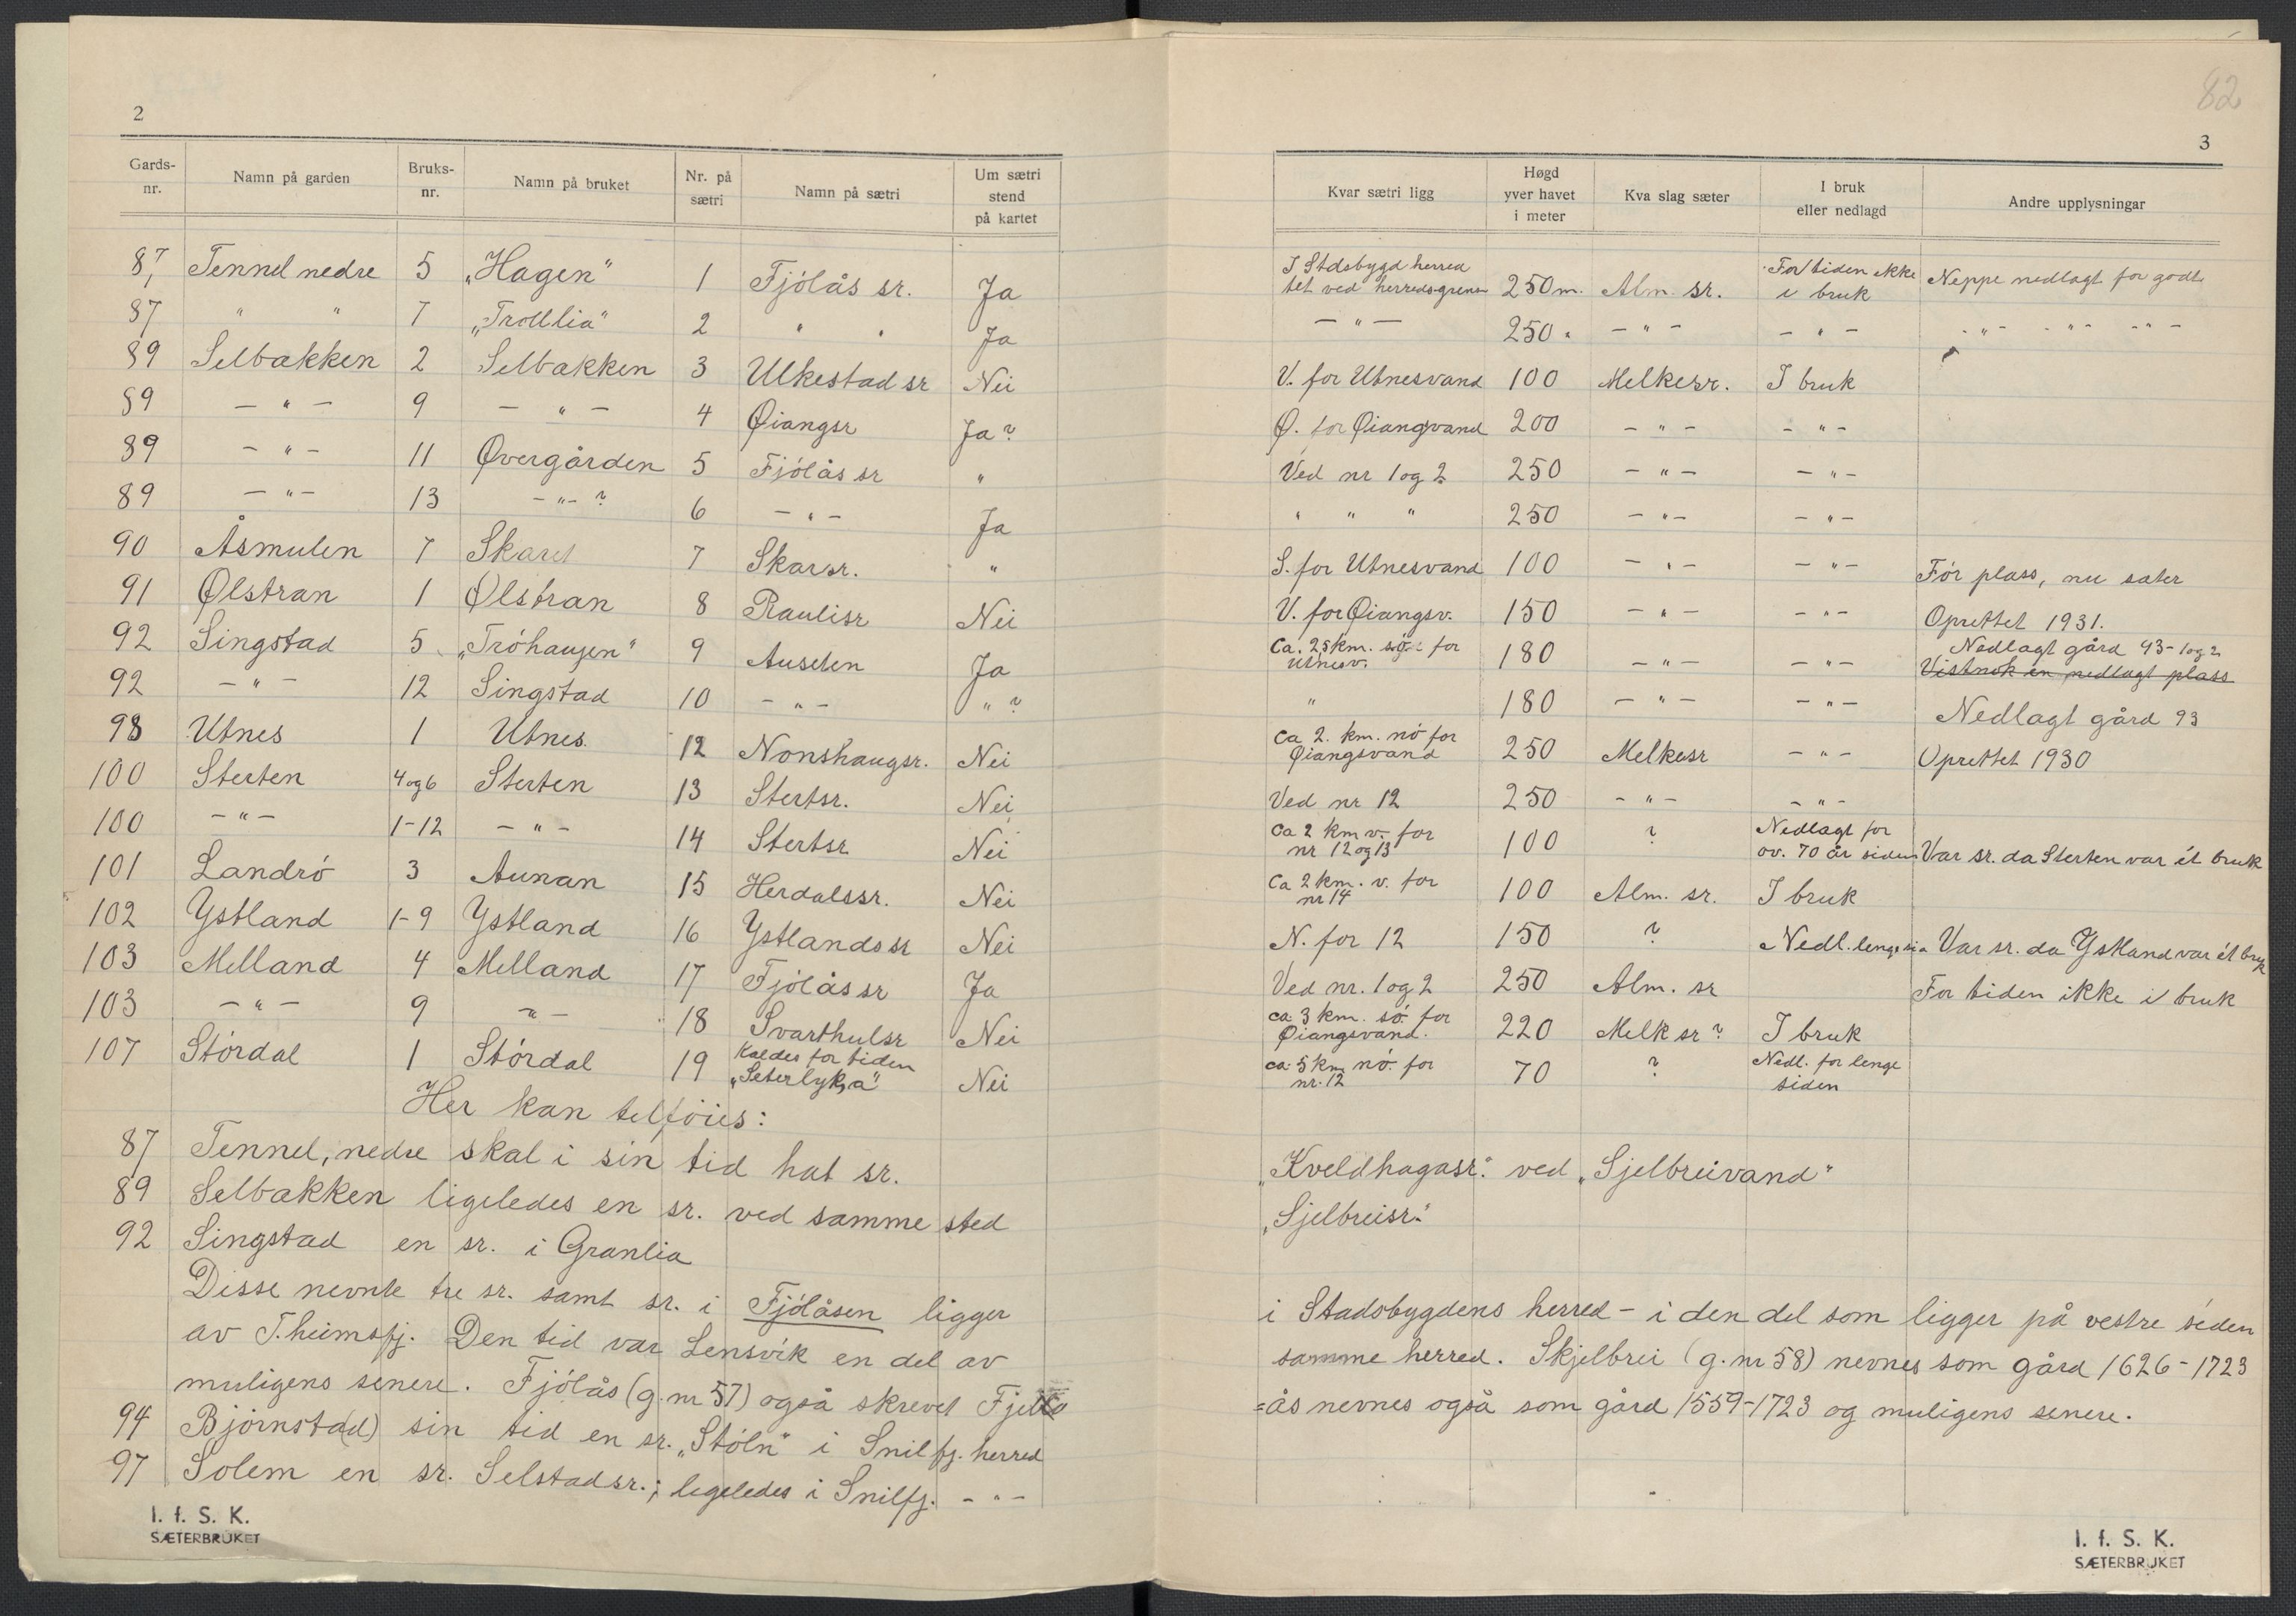 82
2
3
Gards-nr. Namn på garden Bruks-nr. Namn på bruket Nr. på sætri Namn på sætri Um sætri stend på kartet Kvar sætri ligg Høgd yver havet i meter Kva slag sæter I bruk eller nedlagd Andre upplysningar
87, Tennel nedre 5 „Hagen" 1 Fjölås sr. Ja I Stdsbygd herred tet ved herredsgrens 250 m. Alm. sr. For tiden ikke i bruk Neppe nedlagt for godt
87 " " 7 „Trollia" 2 " " Ja — " — 250 " — " — — " — - " - - " - - " -
89 Selbakken 2 Selbakken 3 Ulkestad sr Nei V. for Utnesvand 100 Melkesr. I bruk
89 — " — 9 — " — 4 Øiangsr Ja? Ø. for Øiangvand 200 — " — — " —
89 — " — 11 Øvergården 5 Fjölås sr " Ved nr 1 og 2 250 — " — — " —
89 — " — 13 — " — ? 6 — " — Ja " " " 250 — " — — " —
90 Åsmulen 7 Skaret 7 Skarsr. " S. for Utnesvand 100 — " — — " — För plass, nu sæter
91 Ølstran 1 Ølstran 8 Raulisr Nei V. for Øiangsv. 150 — " — — " — Oprettet 1931.
92 Singstad 5 „Tröhaugen" 9 Auseten Ja Ca. 2,5 km. sö. for Utnesv. 180 — " — — " — Nedlagt gård 93 - 1 og 2 Vistnok en nedlagt plass
92 — " — 12 Singstad 10 — " — " ? " 180 — " — — " — Nedlagt gård 93
98 Utnes 1 Utnes 12 Nonshaugsr. Nei Ca 2. km. nö for Øiangsvand 250 Melkesr — " — Oprettet 1930
100 Sterten 4 og 6 Sterten 13 Stertsr. Nei Ved nr 12 250 — " — — " —
100 — " — 1-12 — " — 14 Stertsr Nei Ca 2 km v. for nr 12 og 13 100 ? Nedlagt for ov. 70 år siden Var sr. da Sterten var ét bruk
101 Landrö 3 Aunan 15 Herdalssr. Nei Ca 2 km. v. for nr 14 100 Alm. sr. I bruk
102 Ystland 1-9 Ystland 16 Ystlandssr Nei N. for 12 150 ? Nedl. lenge si- Var sr. da Ystland var ét bruk
103 Melland 4 Melland 17 Fjölås sr Ja Ved nr. 1 og 2 250 Alm. sr For tiden ikke i bruk
103 — " — 9 — " — 18 Svarthulsr Nei ca 3 km. sö. for Øiangsvand. 220 Melk sr? I bruk
107 Stördal 1 Stördal 19 Kaldes for tiden „Seterlykja" Nei ca. 5 km nö. for nr. 12 70 ? Nedl. for lenge siden
Her kan telföies:
87 Tennel, nedre skal i sin tid hat sr. „Kveldhagasr." ved „Sjelbreivand"
89 Selbakken ligeledes en sr. ved samme sted „Sjelbreisr."
92 Singstad en sr. i Granlia
Disse nevnte tre sr. samt sr. i Fjölåsen ligger i Stadsbygdens herred - i den del som ligger på vestre siden
av T.heimsfj. Den tid var Lensvik en del av samme herred. Skjelbrei (g. nr 58) nevnes som gård 1626-1723
muligens senere. Fjölås (g. nr 57) også skrevet Fjello =ås nevnes også som gård 1559-1723 og muligens senere.
94 Björnsta(d) sin tid en sr. „Stöln" i Snilfj. herred
97 Solem en sr. Selstadsr.; ligeledes i Snilfj. - " -
I. f. S. K.
SÆTERBRUKET
I. f. S. K.
SÆTERBRUKET